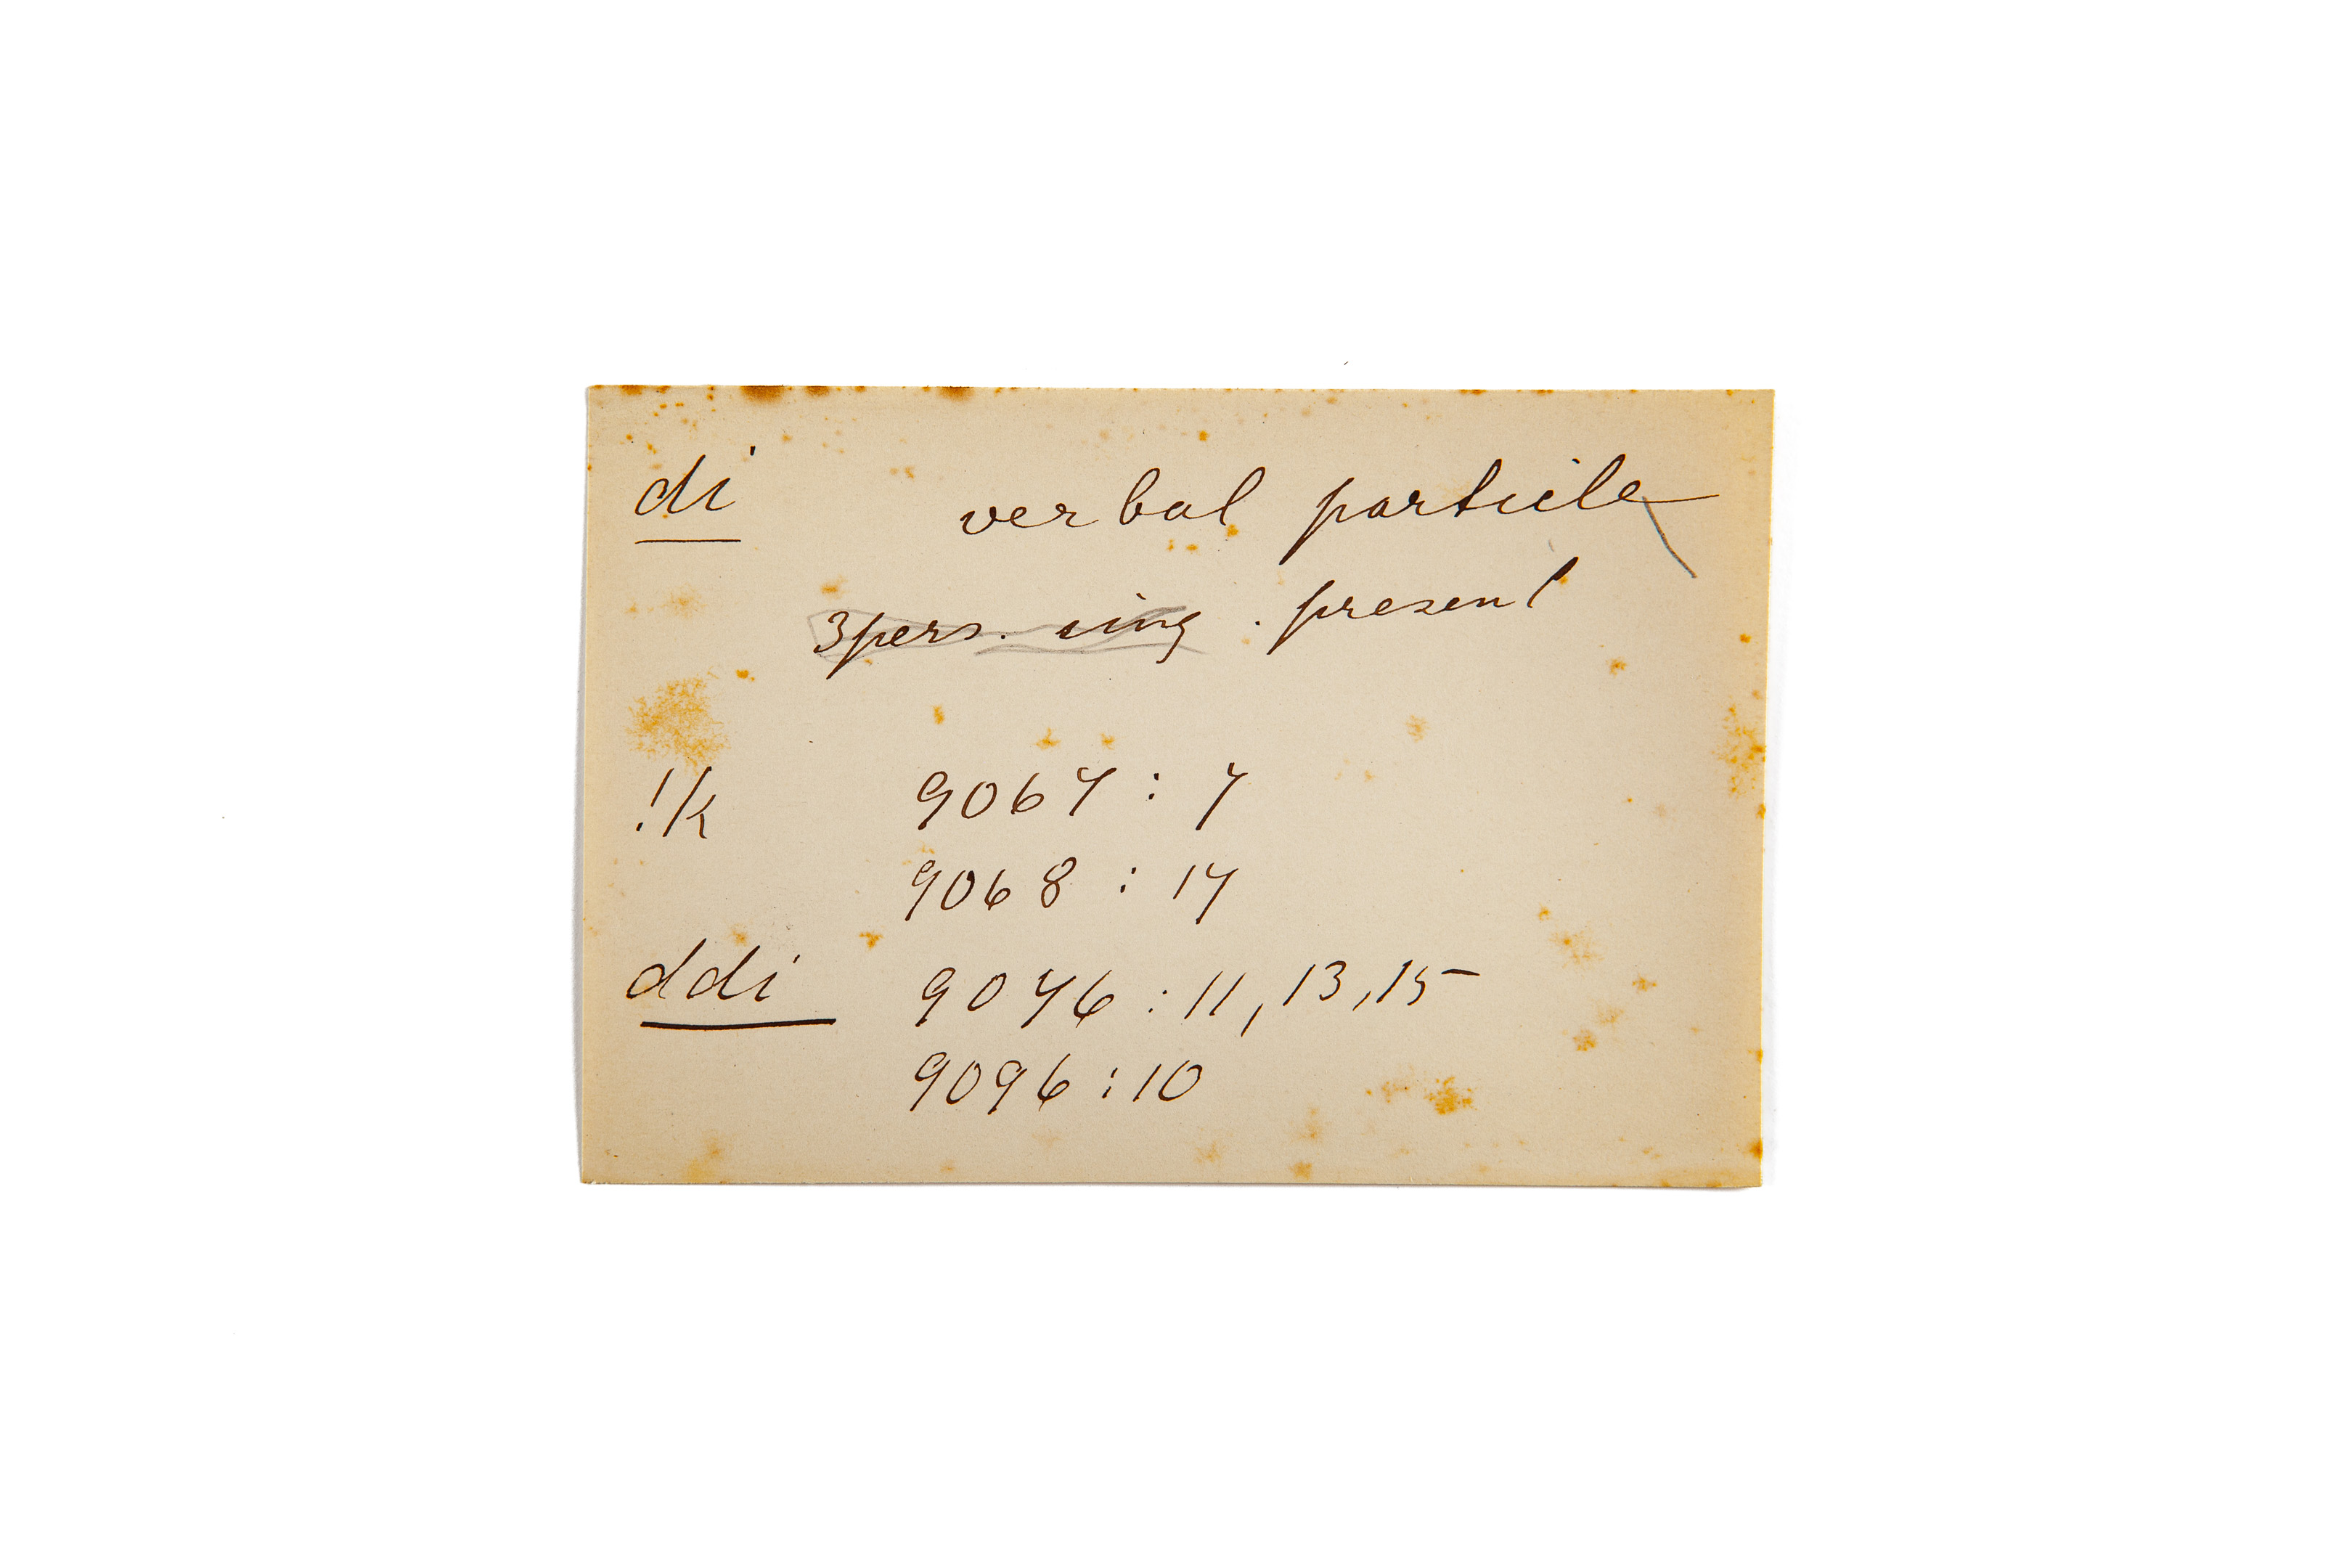 di verbal particle
3 pers. sing. present
!k 9067 : 7
9068 : 17
ddi 9076 : 11, 13, 15
9096 : 10